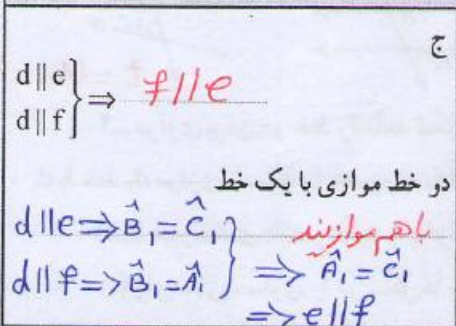 ج
d ∥ e
d ∥ f } ⇒ f // e
دو خط موازی با یک خط باهم موازیند
d ∥ e ⇒ B̂₁ = Ĉ₁
d ∥ f => B̂₁ = Â₁ } ⇒ Â₁ = Ĉ₁
=> e ∥ f